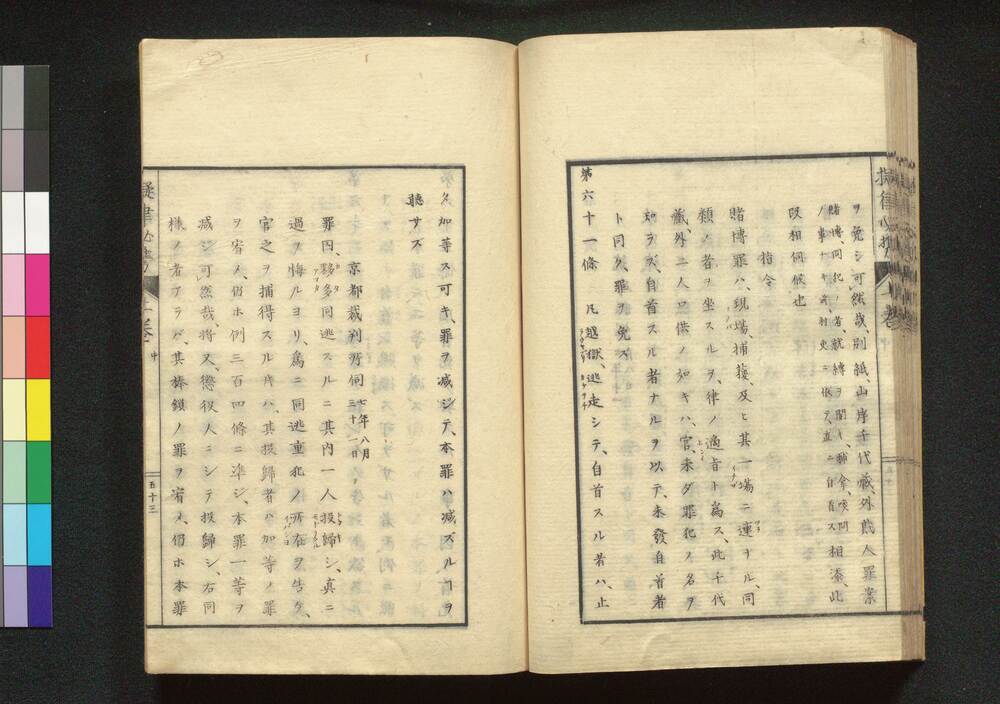 ヲ免シ可然哉、別紙、山岸千代蔵、外貮人罪案
賭博、同犯ノ者、就縛ヲ聞キ、拿喚問
ノ事ナキ前、村吏ニ依テ、直ニ自首ス、相添、此
段相伺候也
指令
賭博罪ハ、現場捕獲、及ヒ其一場ニ連ナル、同
類ノ者ヲ坐スルヲ、律ノ適旨ト為ス、此千代
蔵、外二人口供ノ如キハ、官、未ダ罪犯ノ名ヲ
知ラズ、自首スル、者ナルヲ以テ、未發自首者
ト同ク、罪ヲ免ス
第六十一條 凡越獄逃走シテ、自首スル者ハ、止
タ加等ス可キ、罪ヲ減シテ、本罪ハ減ズルヿヲ
聽サズ
京都裁判所伺 七年八月三十一日
罪囚、夥多同逃スルニ其内一人投歸シ、真ニ
過ヲ悔ルヨリ、為ニ同逃重犯ノ所在ヲ告ケ、
官之ヲ捕得スル片ハ、其投歸者ハ加等ノ罪
ヲ宥メ、仍ホ例三百四條ニ準シ、本罪一等ヲ
減シ可然哉、將又、懲役人ニシテ投歸シ、右同
様ノ者アラバ、其棒鎖ノ罪ヲ宥メ、仍ホ本罪
五十三